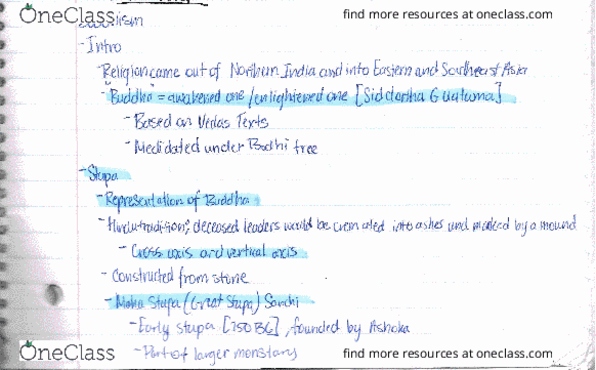 OneClass find more resources at oneclass.com
- Intro
- Religion came out of Northern India and into Eastern and Southeast Asia
- Buddha = awakened one / enlightened one [Siddartha Guatama]
- Based on Vedas Texts
- Medidated under Bodhi tree
- Stupa
- Representation of Buddha
- Hindu tradition; deceased leaders would be cremated into ashes and marked by a mound
- Cross axis and vertical axis
- Constructed from stone
- Maha Stupa (Great Stupa) Sanchi
- Early stupa [250 BC], founded by Ashoka
- Part of larger monstary
OneClass find more resources at oneclass.com